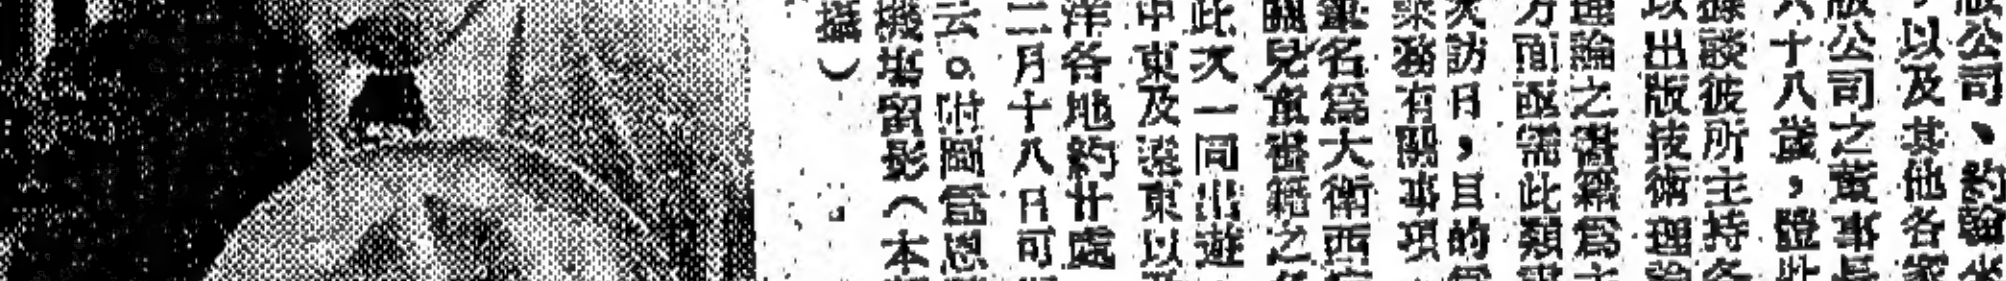 版公司、約翰
，以及其他各家
版公司之董事長
六十八歲，體
據談彼所主持各
以出版技術理論
理論之書籍為主
方面亟需此類
次訪日，目的
業務有關事項
筆名為大衛西
關兒童書籍之
此次一同出遊
中東及遠東以
洋各地約廿處
二月十八日可
云。附圖為恩
機塲留影（本
攝）